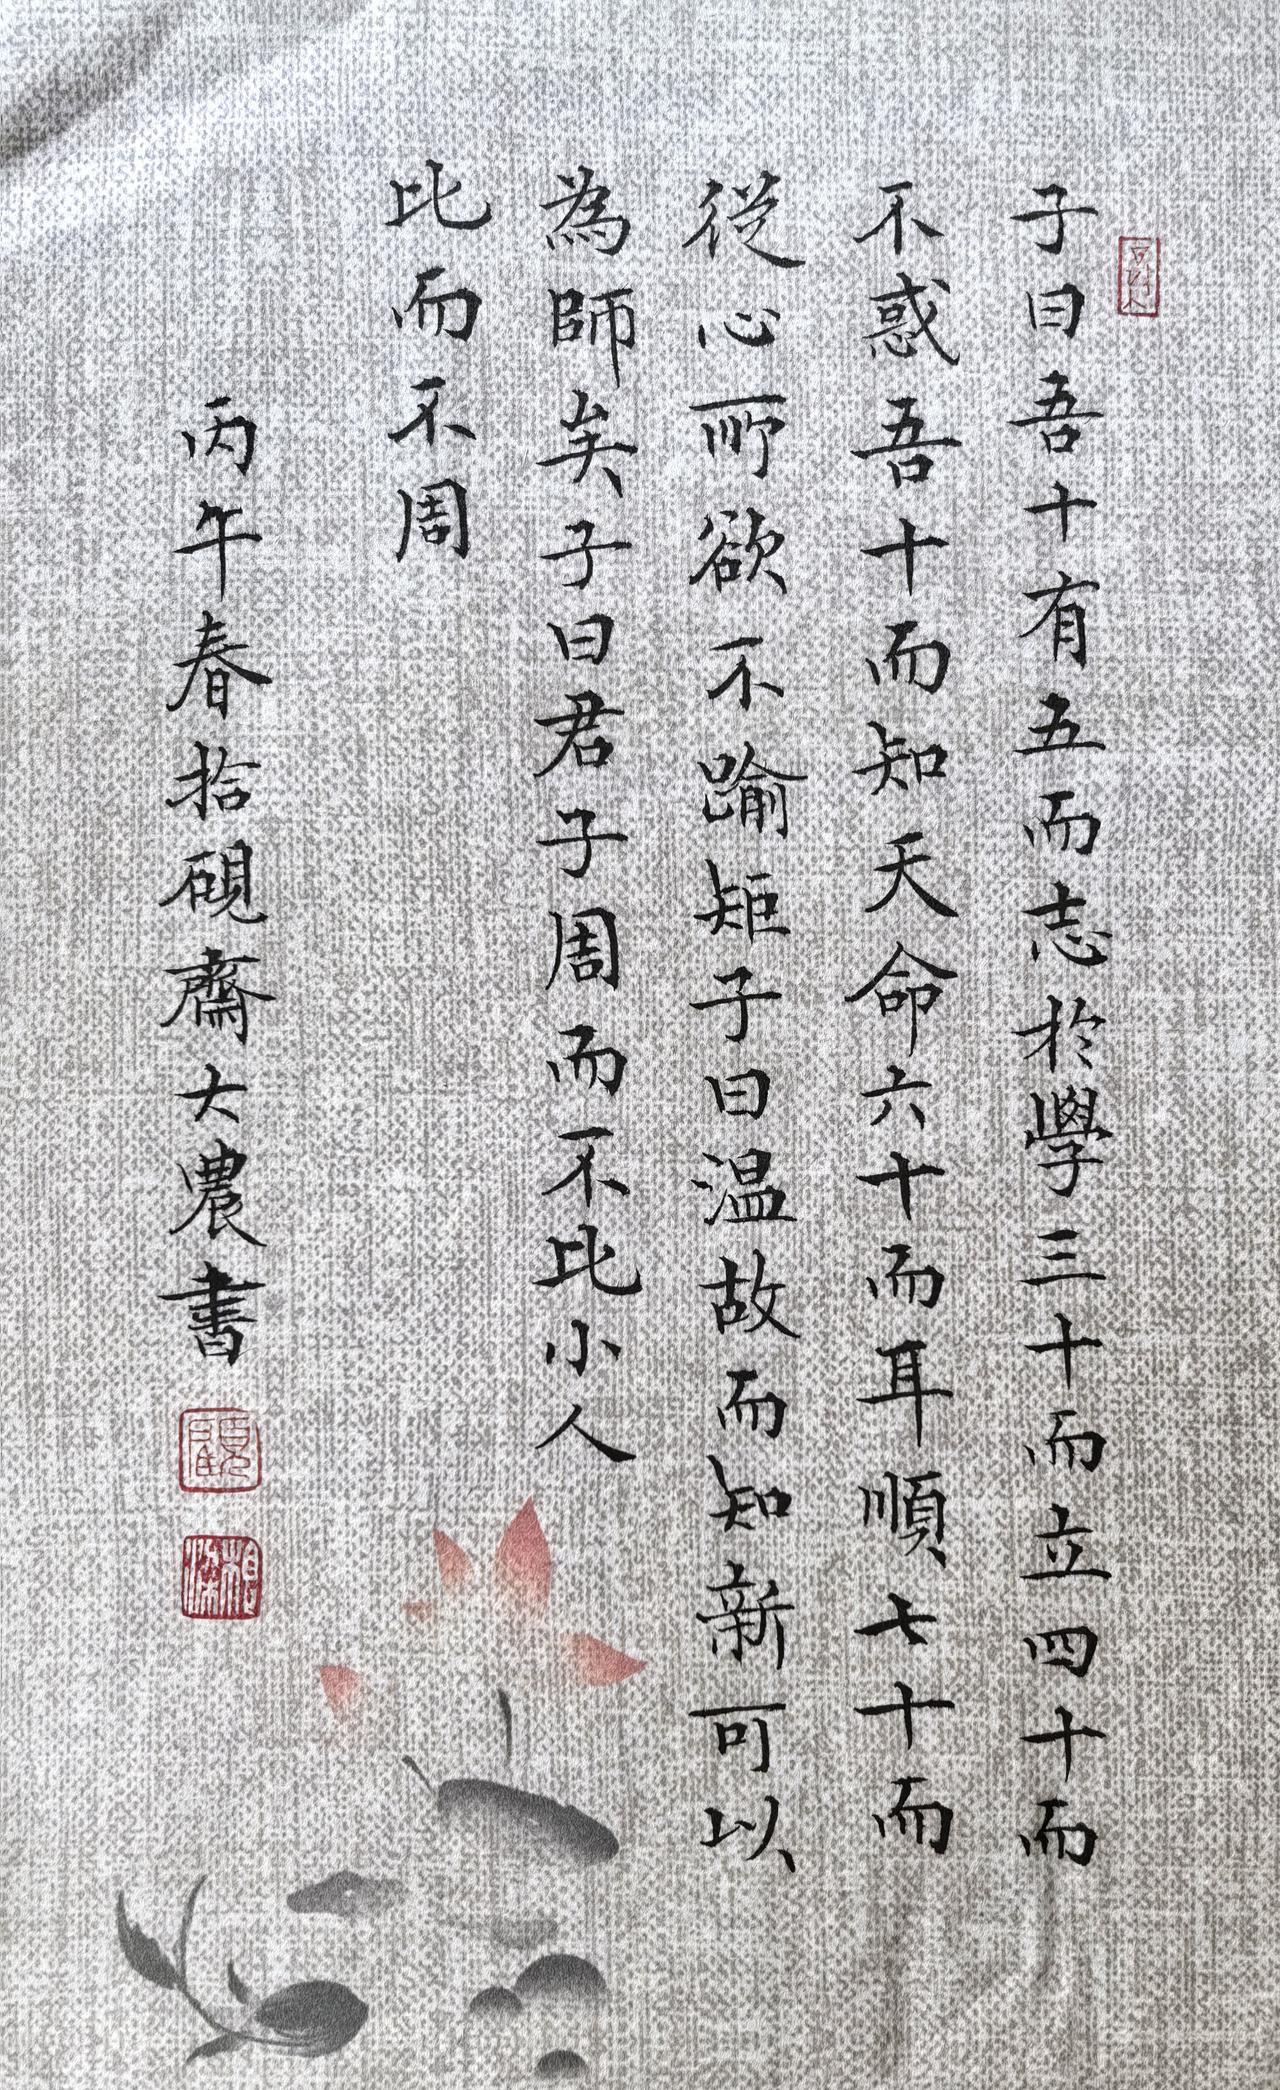 子曰吾十有五而志於學三十而立四十而
不惑吾十而知天命六十而耳順七十而
從心所欲不踰矩子曰温故而知新可以
為師矣子曰君子周而不比小人
比而不周
丙午春拾硯齋大農書